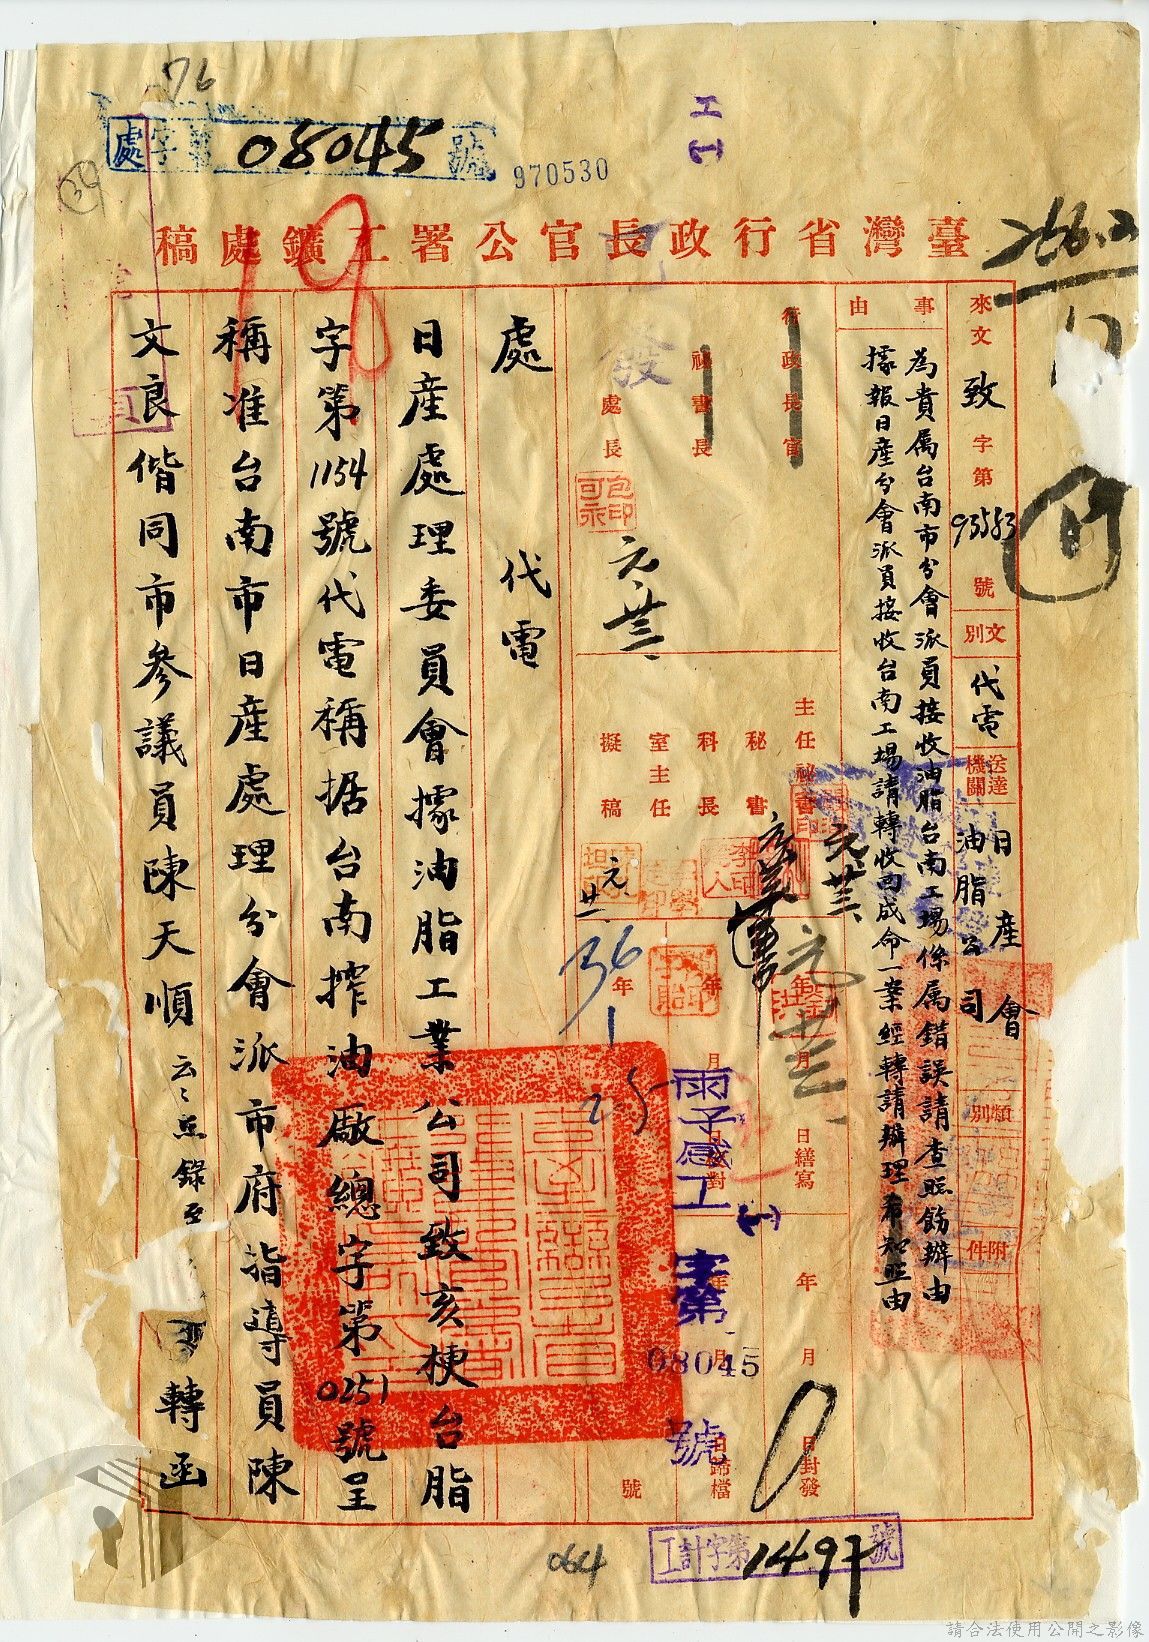 76
處字第08045號
970530
工
39
臺灣省行政長官公署工鑛處稿
266.2
19
來文
致
字第
93583
號
文別
代電
送達機關
日產會
油脂公司
類別
附件
事由
為貴属台南市分會派員接收油脂台南工場係属錯誤請查照飭辦由
據報日產分會派員接收台南工場請轉收回成命一業經轉請辦理希知照由
行政長官
秘書長
處長
發
元.廿三.
主任秘書
秘書
科長
室主任
擬稿
元.廿三
元.廿
36年
1月
25
日繕寫
校對
年
月
日封發
日歸檔
號
雨子感工
(1)
字第
08045
號
處
代電
日産處理委員會據油脂工業公司致亥梗台脂
字第1154號代電稱据台南搾油廠總字第0251號呈
稱准台南市日産處理分會派市府指導員陳
文良偕同市參議員陳天順云々照錄至
轉函
工計字第1497號
064
請合法使用公開之影像